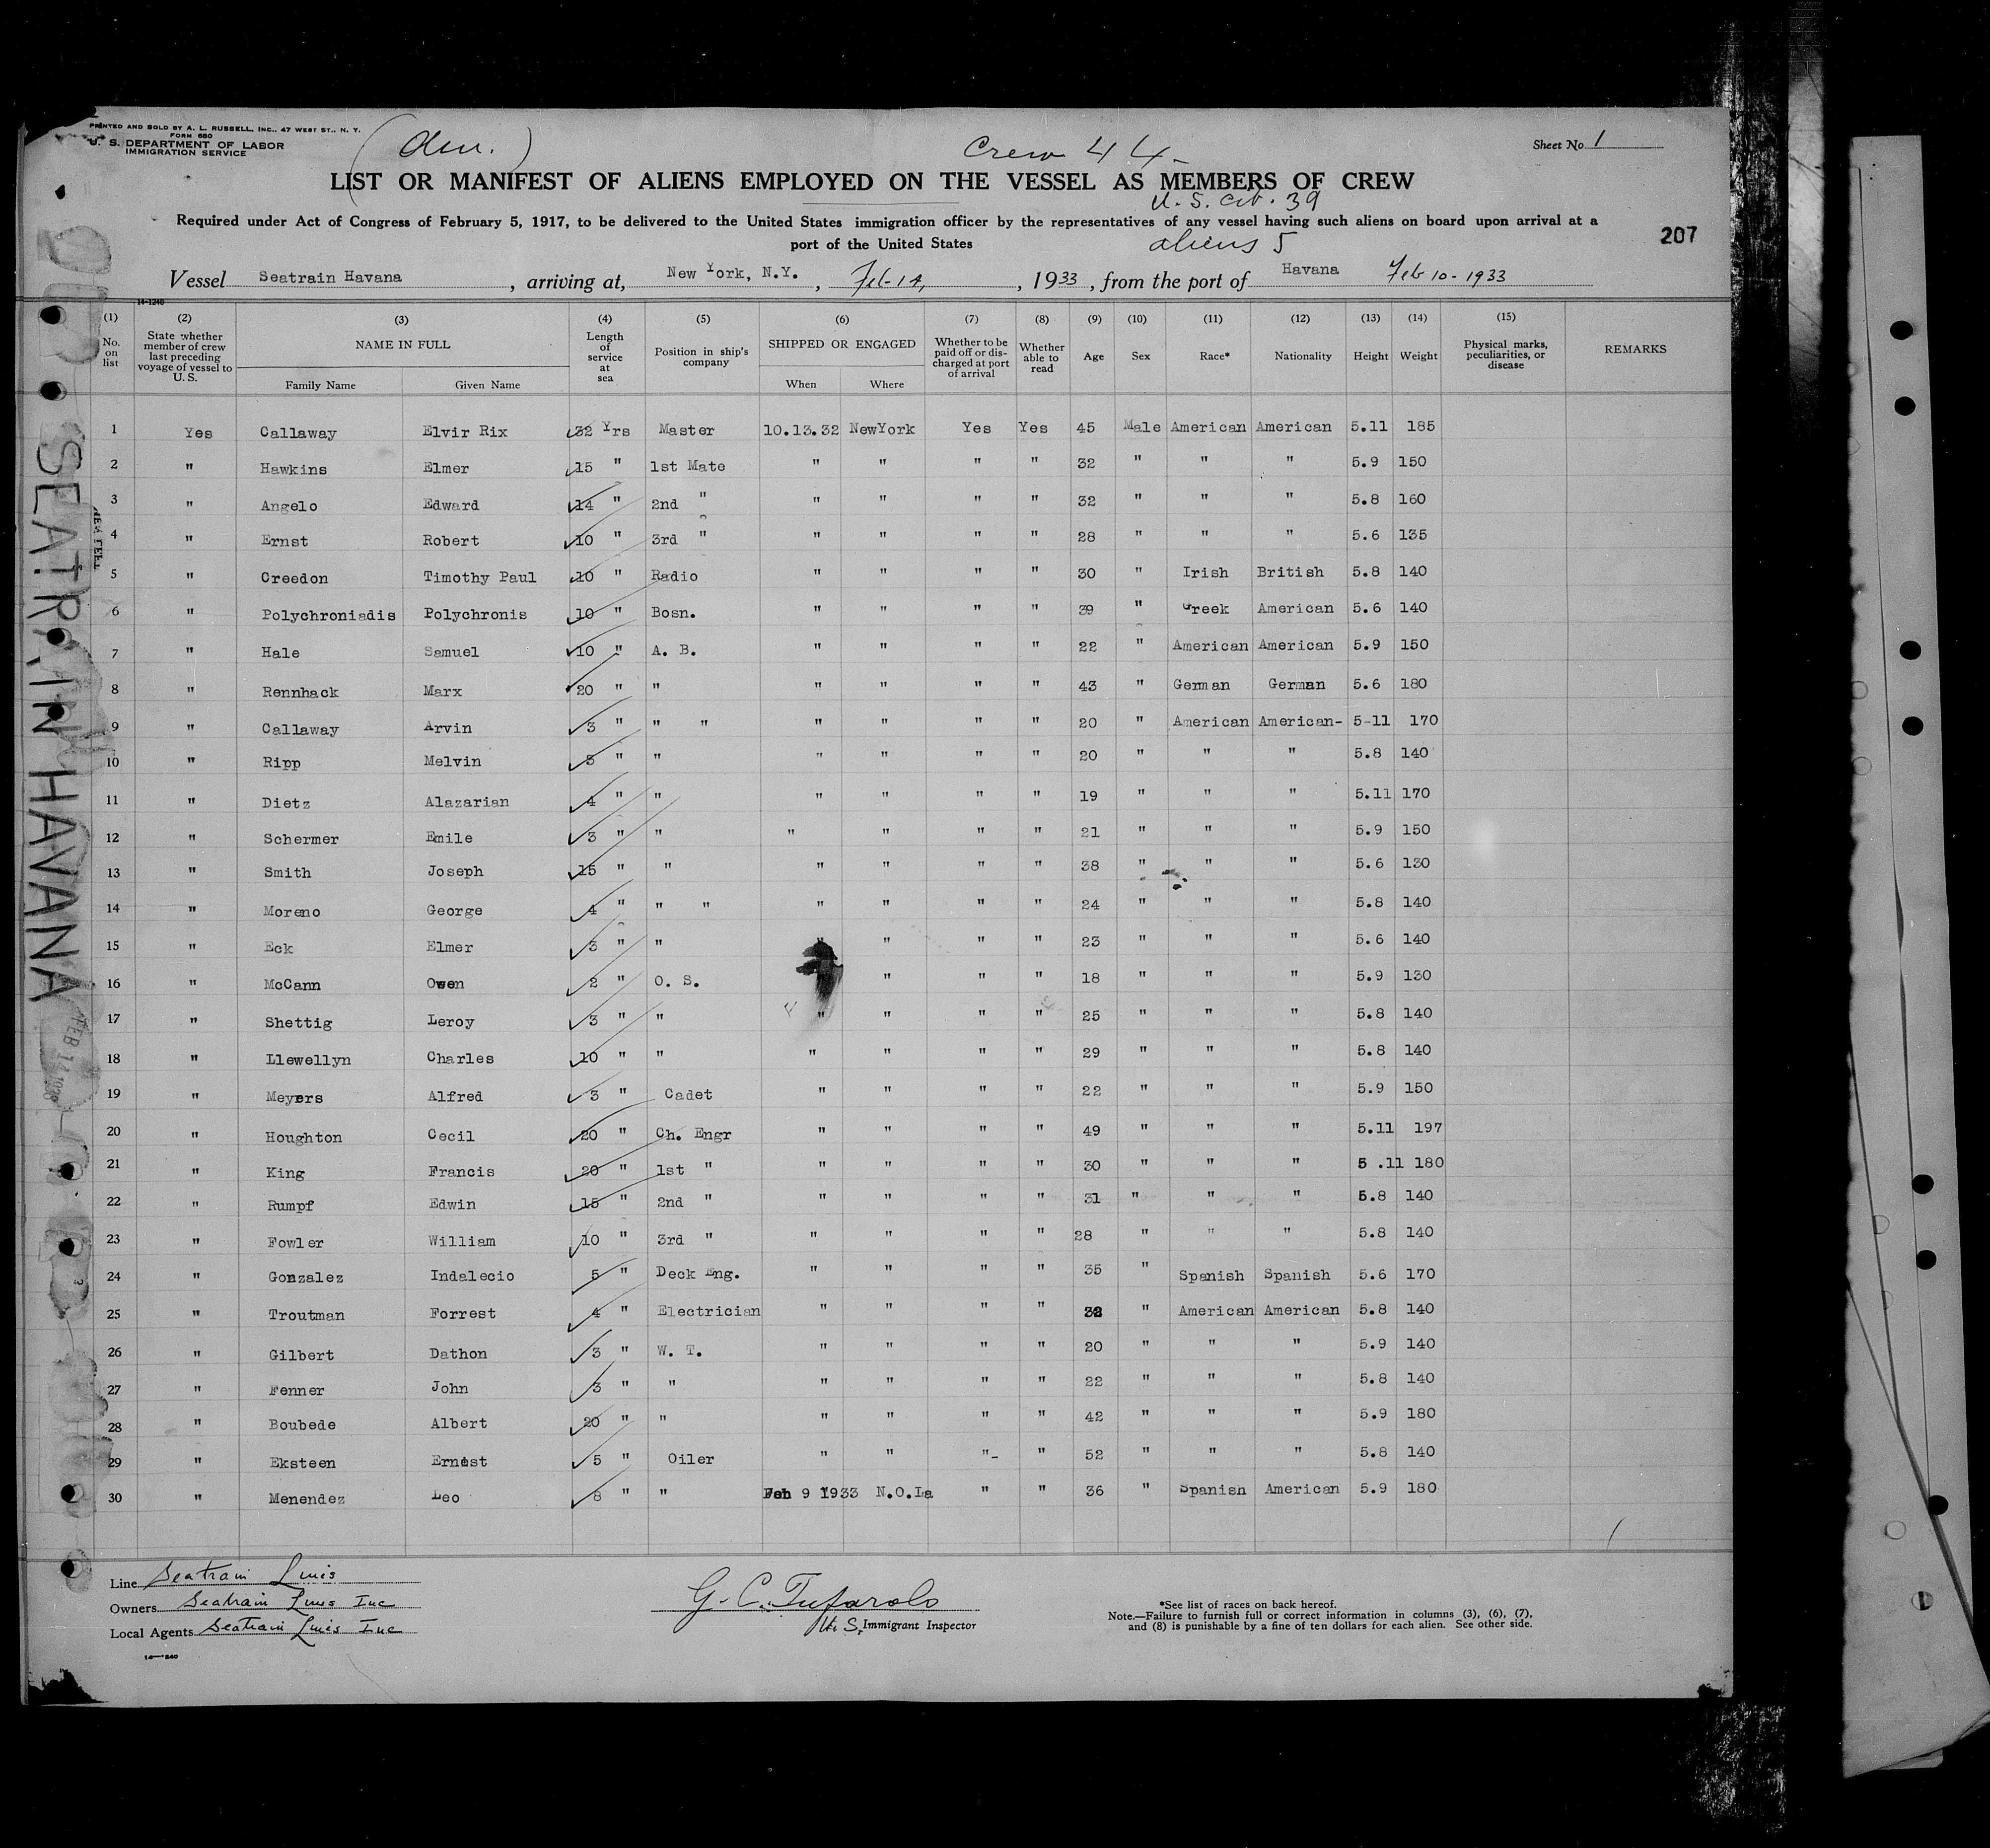 PRINTED AND SOLD BY A. L. RUSSELL, INC., 47 WEST ST., N. Y.
FORM 680
U. S. DEPARTMENT OF LABOR
IMMIGRATION SERVICE
Crew 44
Sheet No 1
LIST OR MANIFEST OF ALIENS EMPLOYED ON THE VESSEL AS MEMBERS OF CREW
U. S. Cit. 39
Required under Act of Congress of February 5, 1917, to be delivered to the United States immigration officer by the representatives of any vessel having such aliens on board upon arrival at a
port of the United States
aliens 5
207
Vessel Seatrain Havana, arriving at, New York, N.Y., Feb-14, 1933, from the port of Havana Feb 10-1933
14-1240
(1) (2) (3) (4) (5) (6) (7) (8) (9) (10) (11) (12) (13) (14) (15)
No. on list State whether member of crew last preceding voyage of vessel to U. S. NAME IN FULL Length of service at sea Position in ship's company SHIPPED OR ENGAGED Whether to be paid off or discharged at port of arrival Whether able to read Age Sex Race* Nationality Height Weight Physical marks, peculiarities, or disease REMARKS
Family Name Given Name When Where
1 Yes Callaway Elvir Rix 32 Yrs Master 10.13.32 NewYork Yes Yes 45 Male American American 5.11 185
2 " Hawkins Elmer 15 " 1st Mate " " " " 32 " " " 5.9 150
3 " Angelo Edward 14 " 2nd " " " " " 32 " " " 5.8 160
4 " Ernst Robert 10 " 3rd " " " " " 28 " " " 5.6 135
5 " Creedon Timothy Paul 10 " Radio " " " " 30 " Irish British 5.8 140
6 " Polychroniadis Polychronis 10 " Bosn. " " " " 39 " Greek American 5.6 140
7 " Hale Samuel 10 " A. B. " " " " 22 " American American 5.9 150
8 " Rennhack Marx 20 " " " " " " 43 " German German 5.6 180
9 " Callaway Arvin 3 " " " " " " " 20 " American American- 5-11 170
10 " Ripp Melvin 3 " " " " " " 20 " " " 5.8 140
11 " Dietz Alazarian 4 " " " " " " 19 " " " 5.11 170
12 " Schermer Emile 3 " " " " " " 21 " " " 5.9 150
13 " Smith Joseph 15 " " " " " " 38 " " " 5.6 130
14 " Moreno George 4 " " " " " " " 24 " " " 5.8 140
15 " Eck Elmer 3 " " " " " " 23 " " " 5.6 140
16 " McCann Owen 2 " O. S. " " " 18 " " " 5.9 130
17 " Shettig Leroy 3 " " " " " " 25 " " " 5.8 140
18 " Llewellyn Charles 10 " " " " " " 29 " " " 5.8 140
19 " Meyers Alfred 3 " Cadet " " " " 22 " " " 5.9 150
20 " Houghton Cecil 20 " Ch. Engr " " " " 49 " " " 5.11 197
21 " King Francis 20 " 1st " " " " " 30 " " " 5 .11 180
22 " Rumpf Edwin 15 " 2nd " " " " " 31 " " " 5.8 140
23 " Fowler William 10 " 3rd " " " " " 28 " " " 5.8 140
24 " Gonzalez Indalecio 5 " Deck Eng. " " " " 35 " Spanish Spanish 5.6 170
25 " Troutman Forrest 4 " Electrician " " " " " American American 5.8 140
26 " Gilbert Dathon 3 " W. T. " " " " 20 " " " 5.9 140
27 " Fenner John 3 " " " " " " 22 " " " 5.8 140
28 " Boubede Albert 20 " " " " " " 42 " " " 5.9 180
29 " Eksteen Ernest 5 " Oiler " " "- " 52 " " " 5.8 140
30 " Menendez Leo 8 " " Feb 9 1933 N.O.La " " 36 " Spanish American 5.9 180
SEATRAIN HAVANA
Line Seatrain Lines
Owners Seatrain Lines Inc
Local Agents Seatrain Lines Inc
G. C. Tufarolo
U. S. Immigrant Inspector
*See list of races on back hereof.
Note.—Failure to furnish full or correct information in columns (3), (6), (7),
and (8) is punishable by a fine of ten dollars for each alien. See other side.